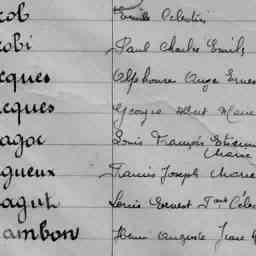 cob Emile Célestin
cobi Paul Charles Emile
cques Alphonse Ange Ernes
cques Georges Albert Marie
agoc Louis François Etienne
Marie
gueux Francis Joseph Marie
agut Louis Ernest Céles
ambon Henri Auguste Jean